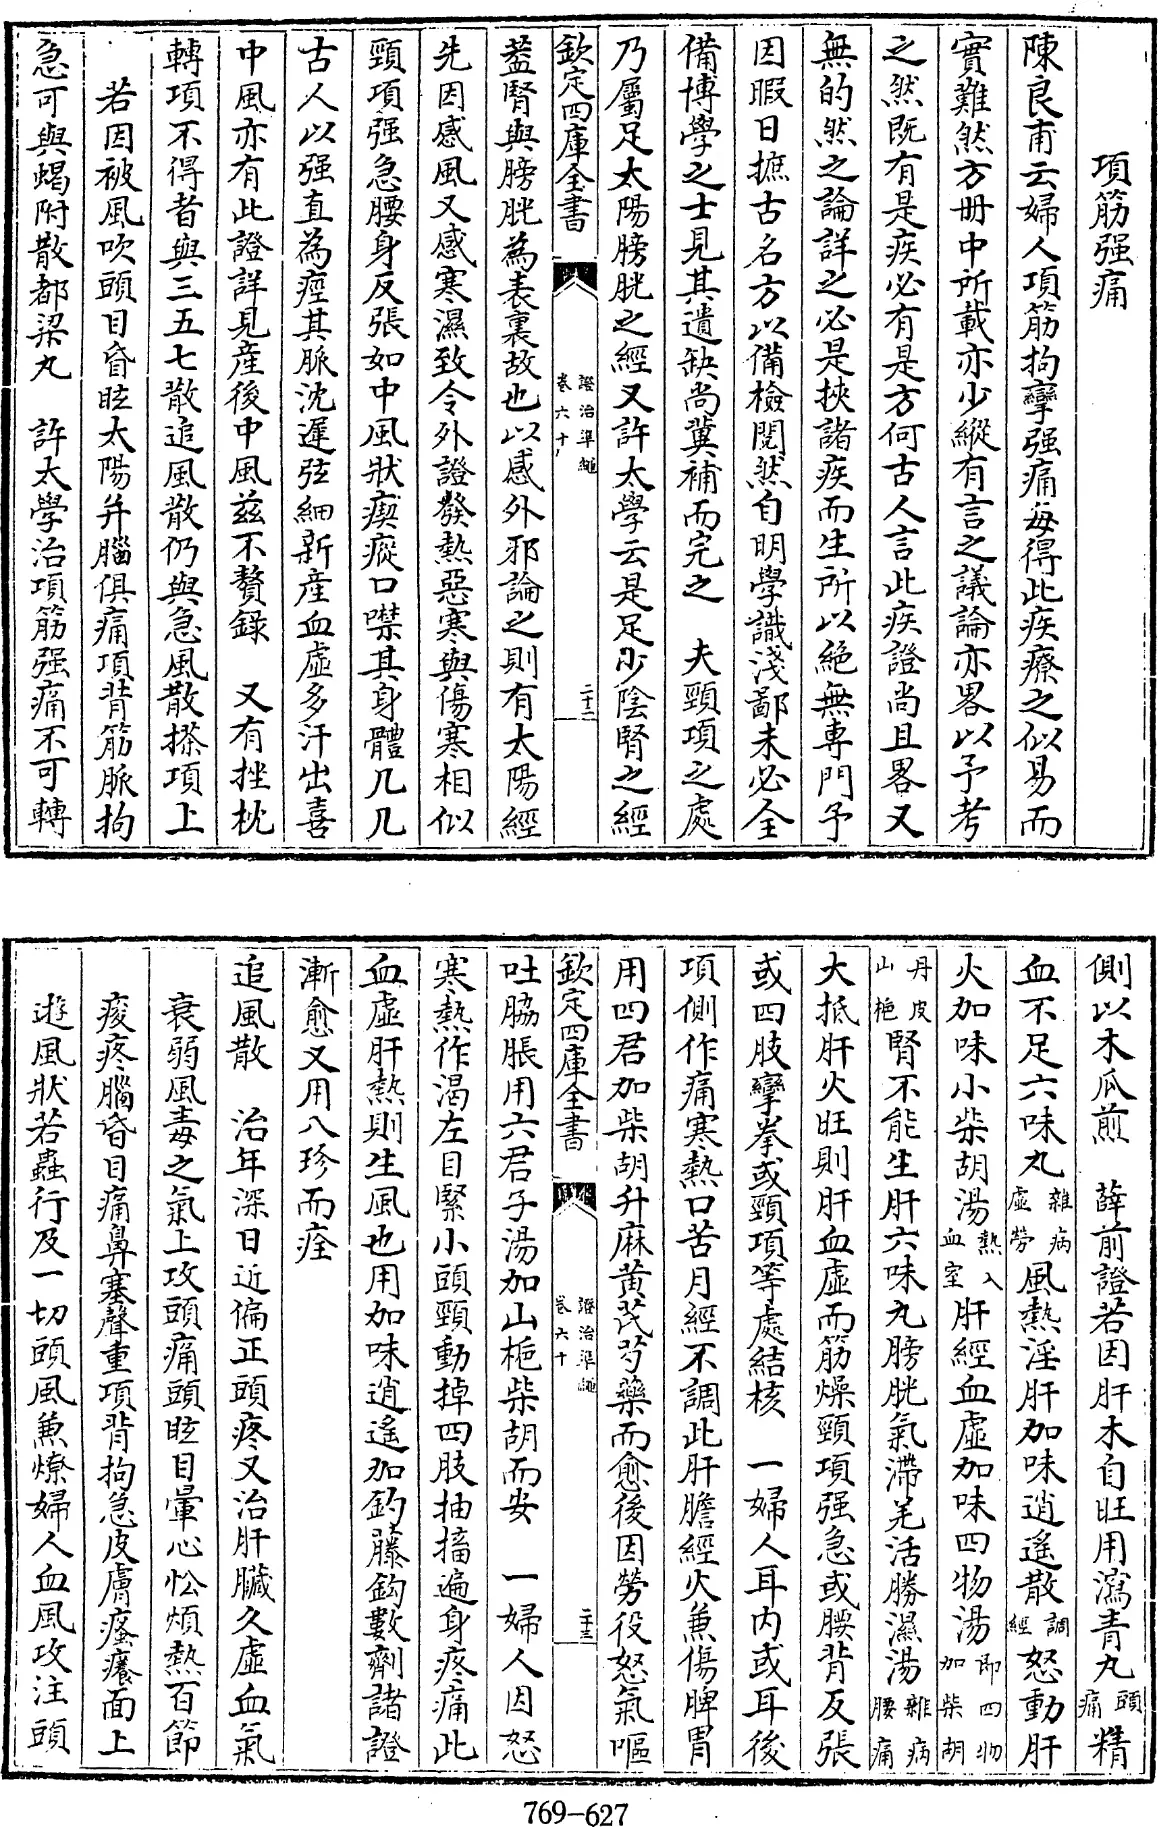 項筋强痛
陳良甫云婦人項筋拘攣强痛每得此疾療之似易而
實難然方册中所載亦少縱有言之議論亦畧以予考
之然既有是疾必有是方何古人言此疾證尚且畧又
無的然之論詳之必是挾諸疾而生所以絶無專門予
因暇日摭古名方以備檢閲然自明學識淺鄙未必全
備博學之士見其遺缺尚冀補而完之　夫頸項之處
乃屬足太陽膀胱之經又許太學云是足少陰腎之經
欽定四庫全書　證治準繩卷六十　二十二
葢腎與膀胱為表裏故也以感外邪論之則有太陽經
先因感風又感寒濕致令外證發熱惡寒與傷寒相似
頸項强急腰身反張如中風狀瘈瘲口噤其身體几几
古人以强直為痙其脈沈遲弦細新産血虛多汗出喜
中風亦有此證詳見産後中風兹不贅録　又有挫枕
轉項不得者與三五七散追風散仍與急風散搽項上
若因被風吹頭目昏眩太陽并腦俱痛項背筋脈拘
急可與蝎附散都梁丸　許太學治項筋强痛不可轉
側以木瓜煎　薛前證若因肝木自旺用瀉青丸頭痛精
血不足六味丸雜病虛勞風熱淫肝加味逍遥散調經怒動肝
火加味小柴胡湯熱入血室肝經血虛加味四物湯即四物加柴胡
丹皮山梔腎不能生肝六味丸膀胱氣滯羌活勝濕湯雜病腰痛
大抵肝火旺則肝血虛而筋燥頸項强急或腰背反張
或四肢攣拳或頸項等處結核　一婦人耳内或耳後
項側作痛寒熱口苦月經不調此肝膽經火兼傷脾胃
用四君加柴胡升麻黄芪芍藥而愈後因勞役怒氣嘔
欽定四庫全書　證治準繩卷六十　二十三
吐脇脹用六君子湯加山梔柴胡而安　一婦人因怒
寒熱作渴左目緊小頭頸動掉四肢抽搐遍身疼痛此
血虛肝熱則生風也用加味逍遥加釣藤鈎數劑諸證
漸愈又用八珍而痊
追風散　治年深日近偏正頭疼又治肝臟久虛血氣
衰弱風毒之氣上攻頭痛頭眩目暈心忪煩熱百節
痠疼腦昏目痛鼻塞聲重項背拘急皮膚瘙癢面上
遊風狀若蟲行及一切頭風兼療婦人血風攻注頭
769-627